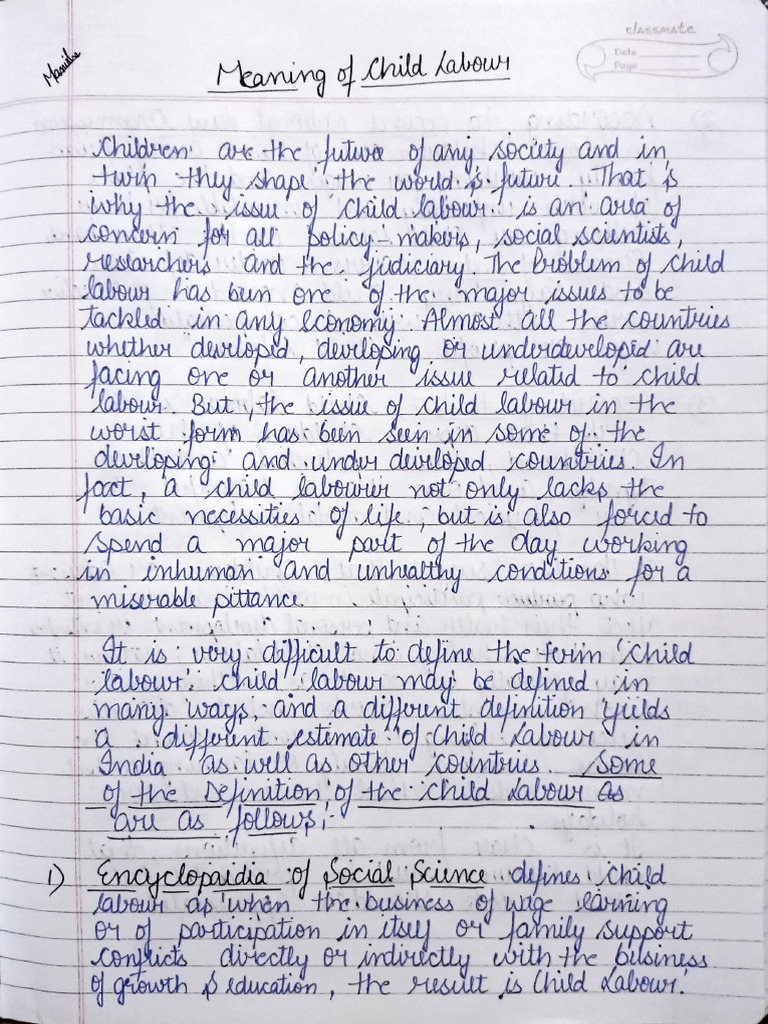 Manisha
classmate
Date
Page
Meaning of Child Labour
Children are the future of any society and in
turn they shape the world's future. That is
why the issue of child labour is an area of
concern for all policy-makers, social scientists,
researchers and the judiciary. The Problem of child
labour has been one of the major issues to be
tackled in any economy. Almost all the countries
whether developed, developing or underdeveloped are
facing one or another issue related to child
labour. But, the issue of child labour in the
worst form has been seen in some of the
developing and under developed countries. In
fact, a child labourer not only lacks the
basic necessities of life, but is also forced to
spend a major part of the day working
in inhuman and unhealthy conditions for a
miserable pittance.
It is very difficult to define the term 'child
labour'. Child labour may be defined in
many ways, and a different definition yields
a different estimate of Child Labour in
India as well as other countries. Some
of the Definition of the child Labour as
are as follows:-
1) Encyclopaidia of Social Science defines child
labour as 'when the business of wage earning
or of participation in itself or family support
conflicts directly or indirectly with the business
of growth & education, the result is Child Labour.'